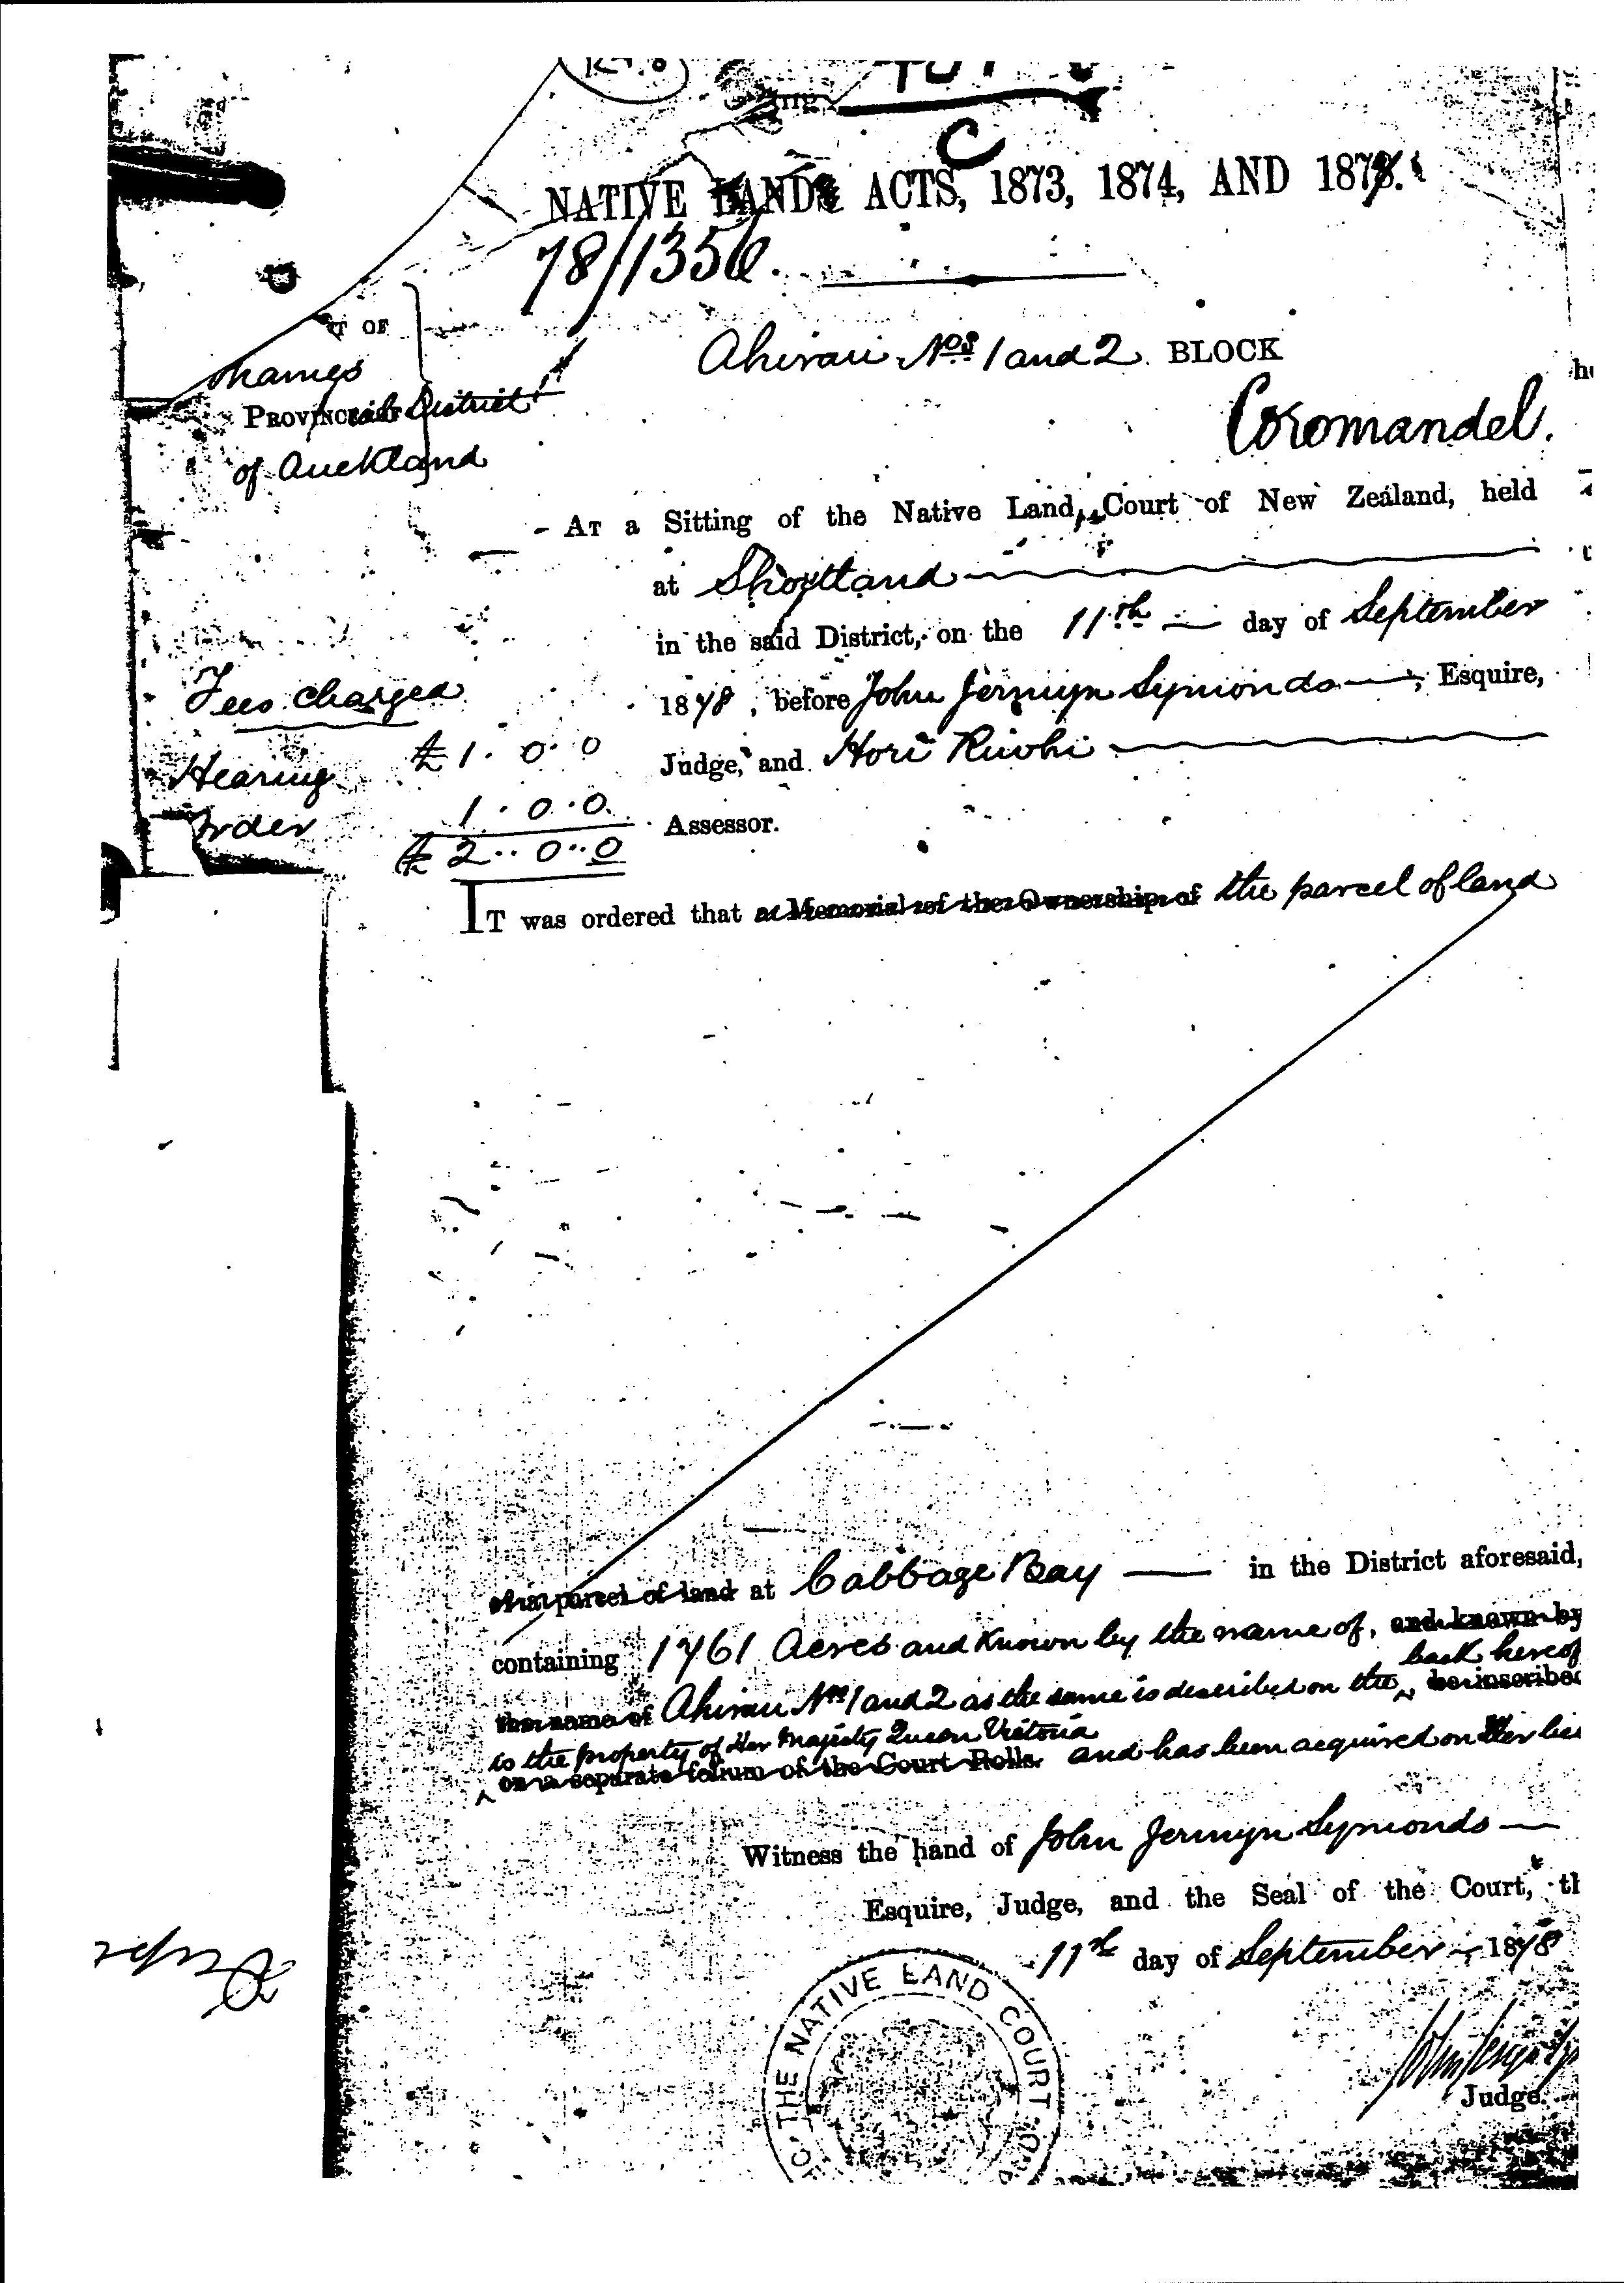 NATIVE LANDS ACTS, 1873, 1874, AND 1878.
78/1356.
T OF
Thames
PROVINCIAL District
of Auckland
Ahirau Nos. 1 and 2 BLOCK
Coromandel.
- AT a Sitting of the Native Land Court of New Zealand, held
at Shortland
in the said District, on the 11th day of September
1878, before John Jermyn Symonds, Esquire,
Judge, and Hori Riwhi
Assessor.
Fees Charged
Hearing £1. 0. 0
Order 1. 0. 0
£ 2. 0. 0
IT was ordered that a Memorial of the Ownership of the parcel of land
that parcel of land at Cabbage Bay in the District aforesaid,
containing 1761 Acres and known by the name of, and known by
back hereof
the name of Ahirau Nos 1 and 2 as the same is described on the be inscribed
is the property of Her Majesty Queen Victoria
on a separate folium of the Court Rolls. and has been acquired on Her
Witness the hand of John Jermyn Symonds
Esquire, Judge, and the Seal of the Court, th
11th day of September 1878
John Jermyn Sy
Judge.
THE NATIVE LAND COURT
Order